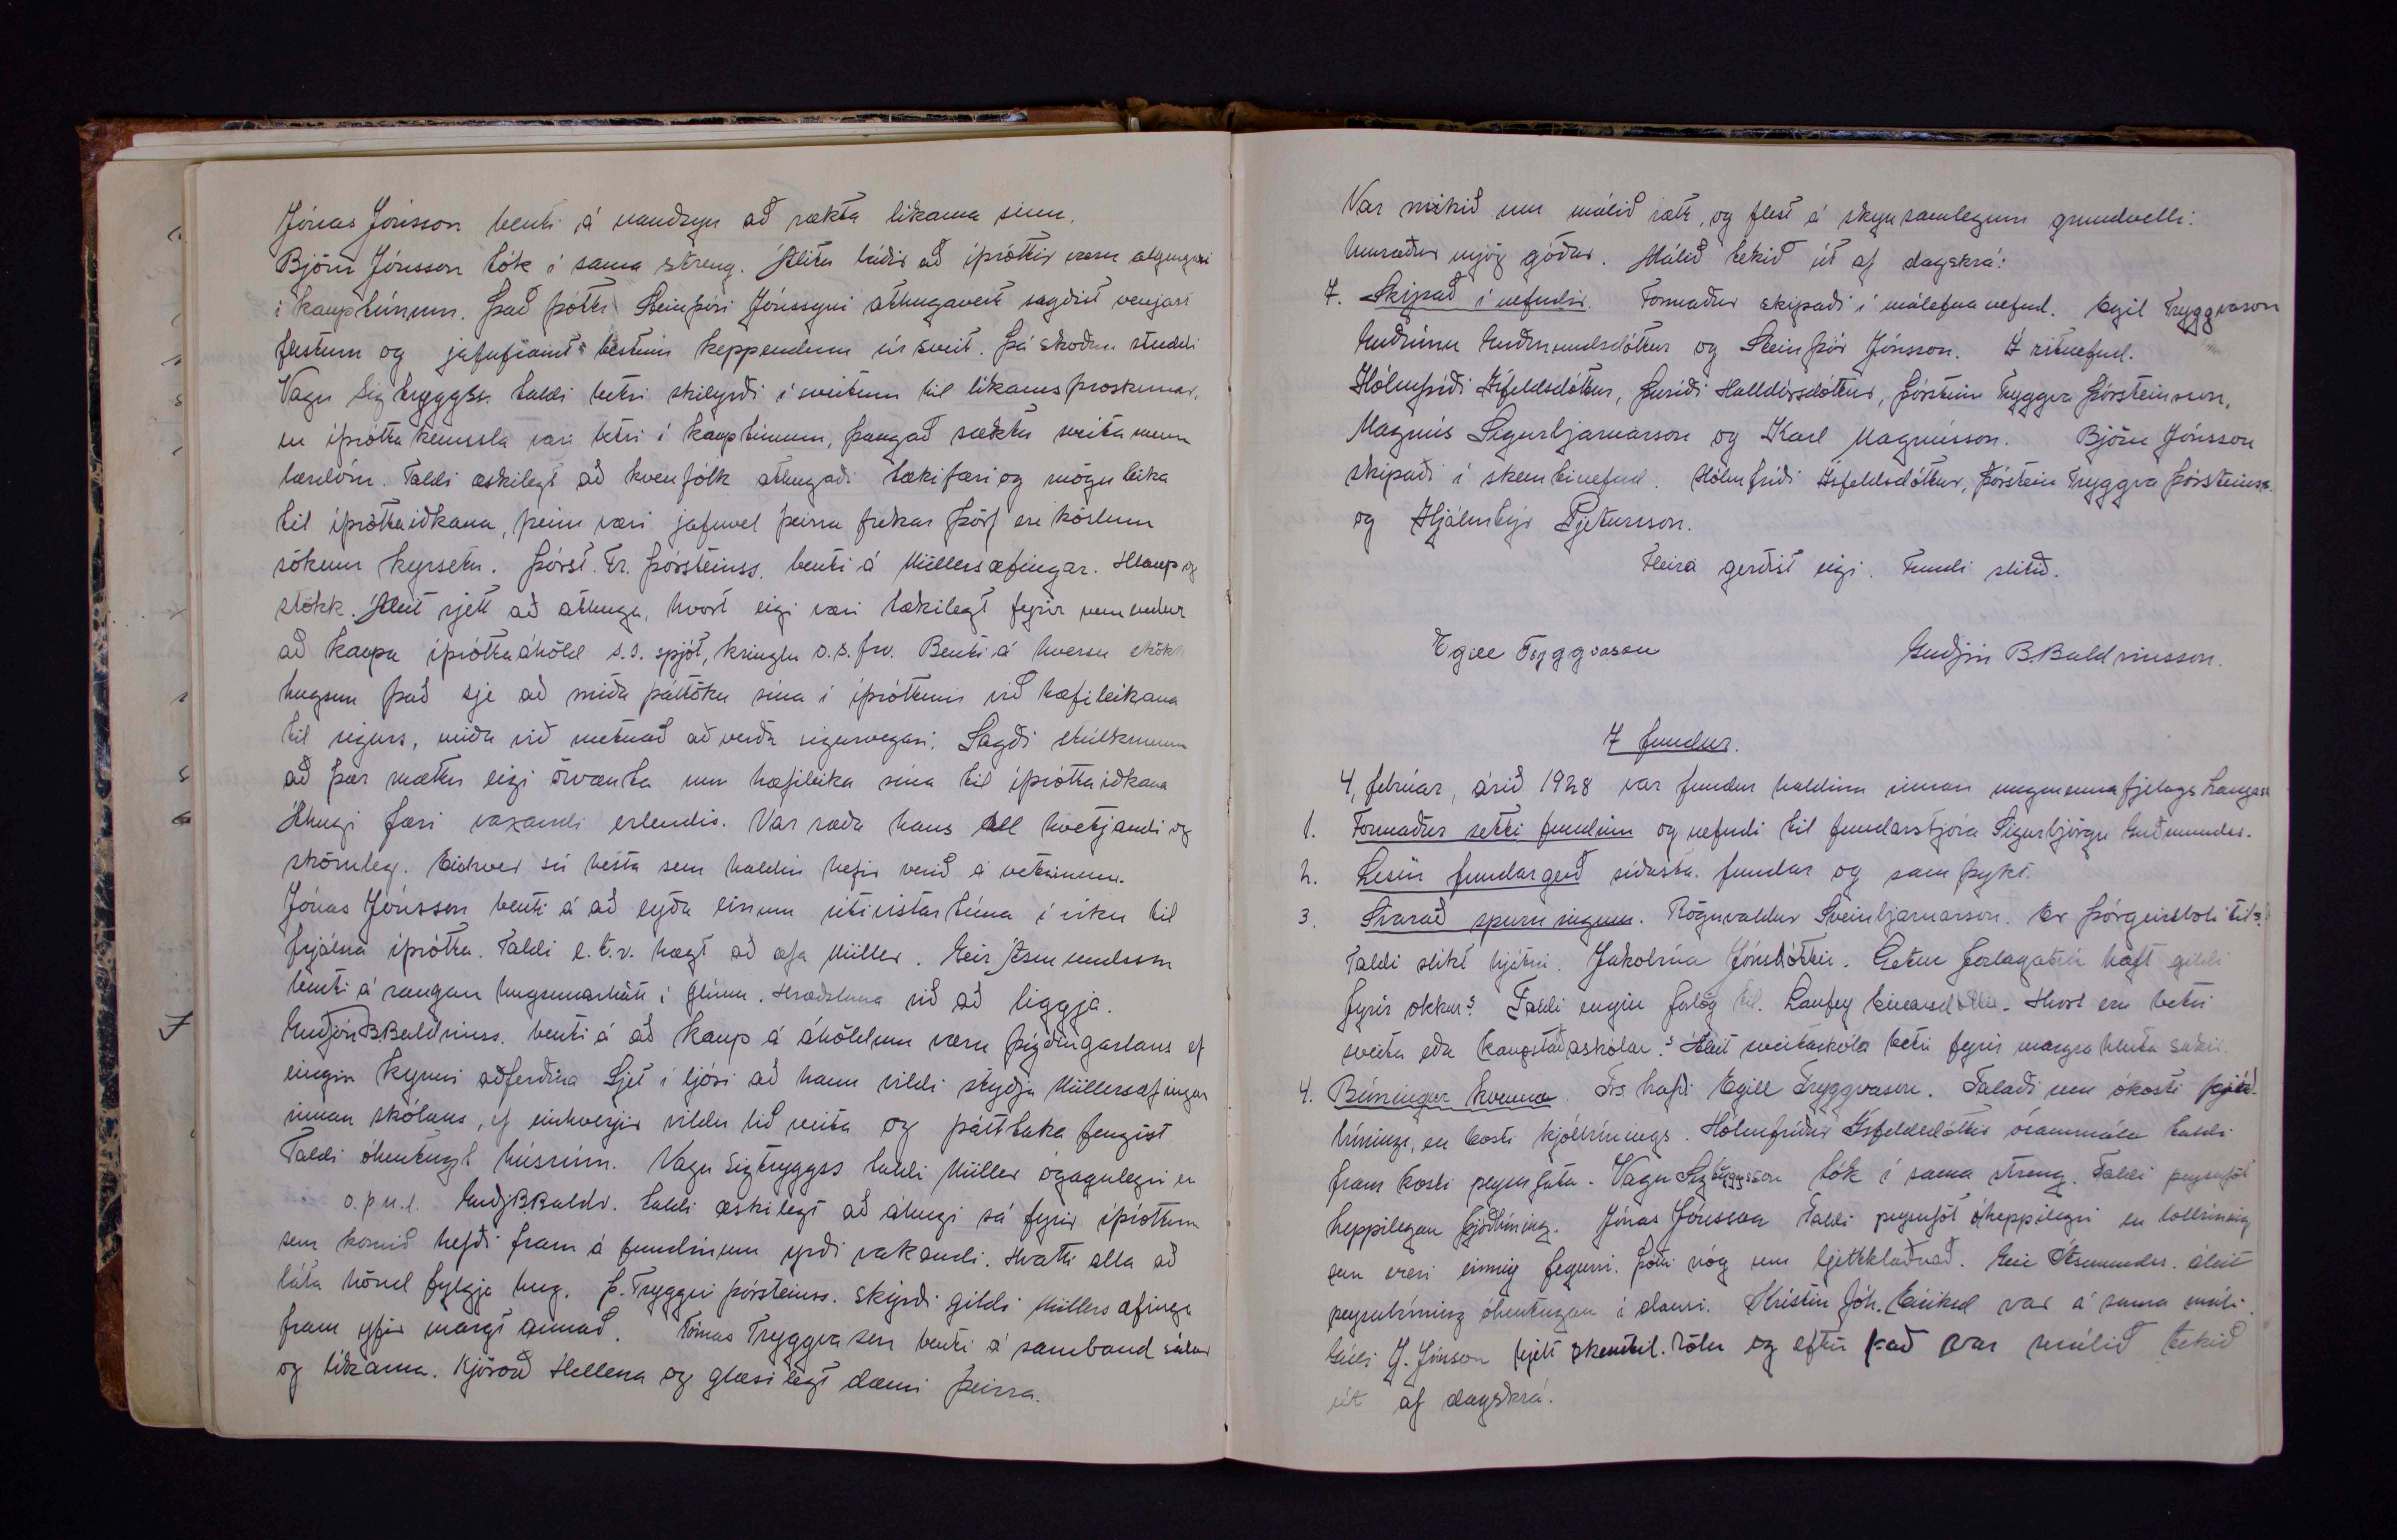 Jónas Jónsson benti á nauðsyn að rækta líkama sinn.
Björn Jónsson tók í sama streng. Álitu báðir að íþróttir væru algengari
í kauptúnum. Það þótti Steinþóri Jónssyni athugavert sagðist venjast
flestum og jafnfiamt bestum keppendum úr sveit. Þá skoðun studdi
Vagn Sigtryggss. taldi betri skilyrði í sveitum til líkamsþroskunar,
en íþrótta kennsla væri betri í kauptúnum, þangað sæktu sveitamenn
lærdóm. Taldi æskilegt að kvenfólk athugaði tækifæri og möguleika
til íþróttaiðkana, þeim væri jafnvel þeirra frekar þörf en körlum
sökum kyrsetu. Þórst. Tr. Þórsteinss. benti á Müllersæfingar. Hlaup og
stökk. Áleit rjett að athuga, hvort eigi væri tækilegt fyrir nemendur
að kaupa íþróttaáhöld s.s. spjót, kringlu o.s.frv. Benti á hversu skökk
hugsun það sje að miða þátttöku sína í íþróttum við hæfileikana
til sigurs, miða við metnað að verða sigurvegari. Sagði stúlkunum
að þær mættu eigi örvænta um hæfileika sína til íþróttaiðkana
Áhugi færi vaxandi erlendis. Var ræða hans öll hvetjandi og
skörugleg. Einhver sú besta sem haldin hefir verið á vetrinum.
Jónas Jónsson benti á að eyða einum útivistartíma í viku til
frjálsra íþrótta. Taldi e.t.v. hægt að æfa Müller. Geir Ásmundsson
benti á rangan hugsunarhátt í glímu. Hræðsluna við að liggja.
Guðjón B. Baldvinss. benti á að kaup á áhöldum væru þýðingarlaus ef
enginn kynni aðferðina Ljet í ljósi að hann vildi styðja Müllersæfingar
innan skólans, ef einhverjir vildu lið veita og þátttaka fengist
Taldi óhentugt húsrúm. Vagn Sigtryggss taldi Müller ógagnlegri en
o.þ.u.l. Guðj.B.Baldv. taldi æskilegt að áhugi sá fyrir íþróttum
sem komið hefði fram á fundinum yrði vakandi. Hvatti alla að
láta hönd fylgja hug. Þ. Tryggvi Þórsteinss. skýrði gildi Müllers æfinga
fram yfir margt annað. Tómas Tryggvason benti á samband sálar
og líkama. Kjörorð Hellena og glæsilegt dæmi þeirra.
Var mikið um málið rætt, og flest á skynsamlegum grundvelli.
Umræður mjög góðar. Málið tekið út af dagskrá.
7. Skipað í nefndir. Formaður skipaði í málefnanefnd. Egil Tryggvason
Guðrúnu Guðmundsdóttur og Steinþór Jónsson. Í ritnefnd.
Hólmfríði Ísfeldsdóttur, Þuríði Halldórsdóttur, Þórstein Tryggva Þórsteinsson,
Magnús Sigurbjarnarson og Karl Magnússon. Björn Jónsson
skipaði í skemtinefnd. Hólmfríði Ísfeldsdóttur, Þórstein Tryggva Þórsteinss.
og Hjálmtýr Pjetursson.
Fleira gerðist eigi. Fundi slitið.
Egill Tryggvason Guðjón B. Baldvinsson.
7 fundur.
4, febrúar, árið 1928 var fundur haldinn innan ungmennafjelags Laugask
1. Formaður setti fundinn og nefndi til fundarstjóra Sigurbjörgu Guðmundsd.
2. Lesin fundargerð síðasta fundar og samþykt.
3. Svarað spurningum. Rögnvaldur Sveinbjarnarson. Er Þórgeirsboli til?
Taldi slíkt hjátrú. Jakobína Jónsdóttir. Getur forlagatrú haft gildi
fyrir okkur? Taldi engin forlög til. Laufey Einarsdóttir. Hvort eru betri
sveita eða kaupstaðaskólar? Áleit sveitaskóla betri fyrir margra hluta sakir.
4. Búningur kvenna. Frs. hafði Egill Tryggvason. Talaði um ókosti þjóð-
búnings, en kosti kjólbúnings. Hólmfríður Ísfeldsdóttir ósammála taldi
fram kosti peysufata. Vagn Sigtryggsson tók í sama streng. Taldi peysuföt
heppilegan þjóðbúning. Jónas Jónsson taldi peysuföt óheppilegri en kollbúning
sem væri einnig fegurri. Þótti nóg um ljettklæðnað. Geir Ásmundss. áleit
peysubúning óhentugan í dansi. Kristín Jóh. Eiríksd var á sama máli.
J. Jónsson hjelt skemtil. tölu og eftir það var málið tekið
út af dagskrá.